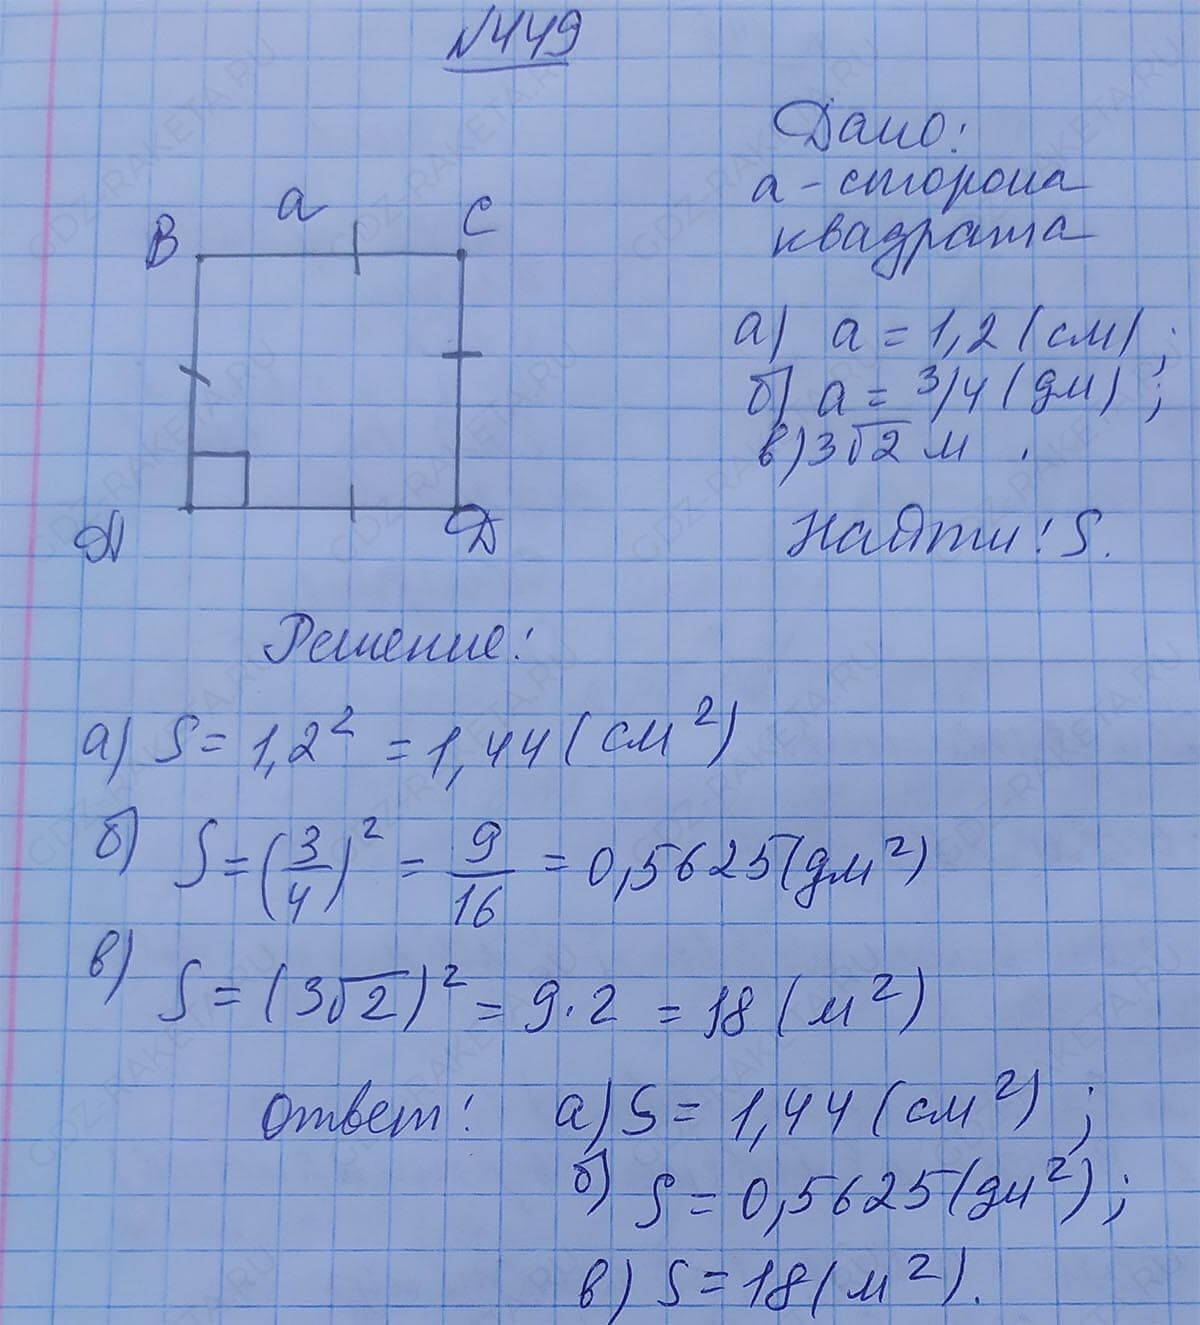 №449
Дано:
а - сторона
квадрата
а) а = 1,2 (см);
б) а = 3/4 (дм);
в) 3√2 м.
Найти: S.
а
B
C
A
D
Решение:
а) S = 1,2² = 1,44 (см²)
б) S = (3/4)² = 9/16 = 0,5625 (дм²)
в) S = (3√2)² = 9·2 = 18 (м²)
Ответ: а) S = 1,44 (см²);
б) S = 0,5625 (дм²);
в) S = 18 (м²).
GDZ-RAKETA.RU